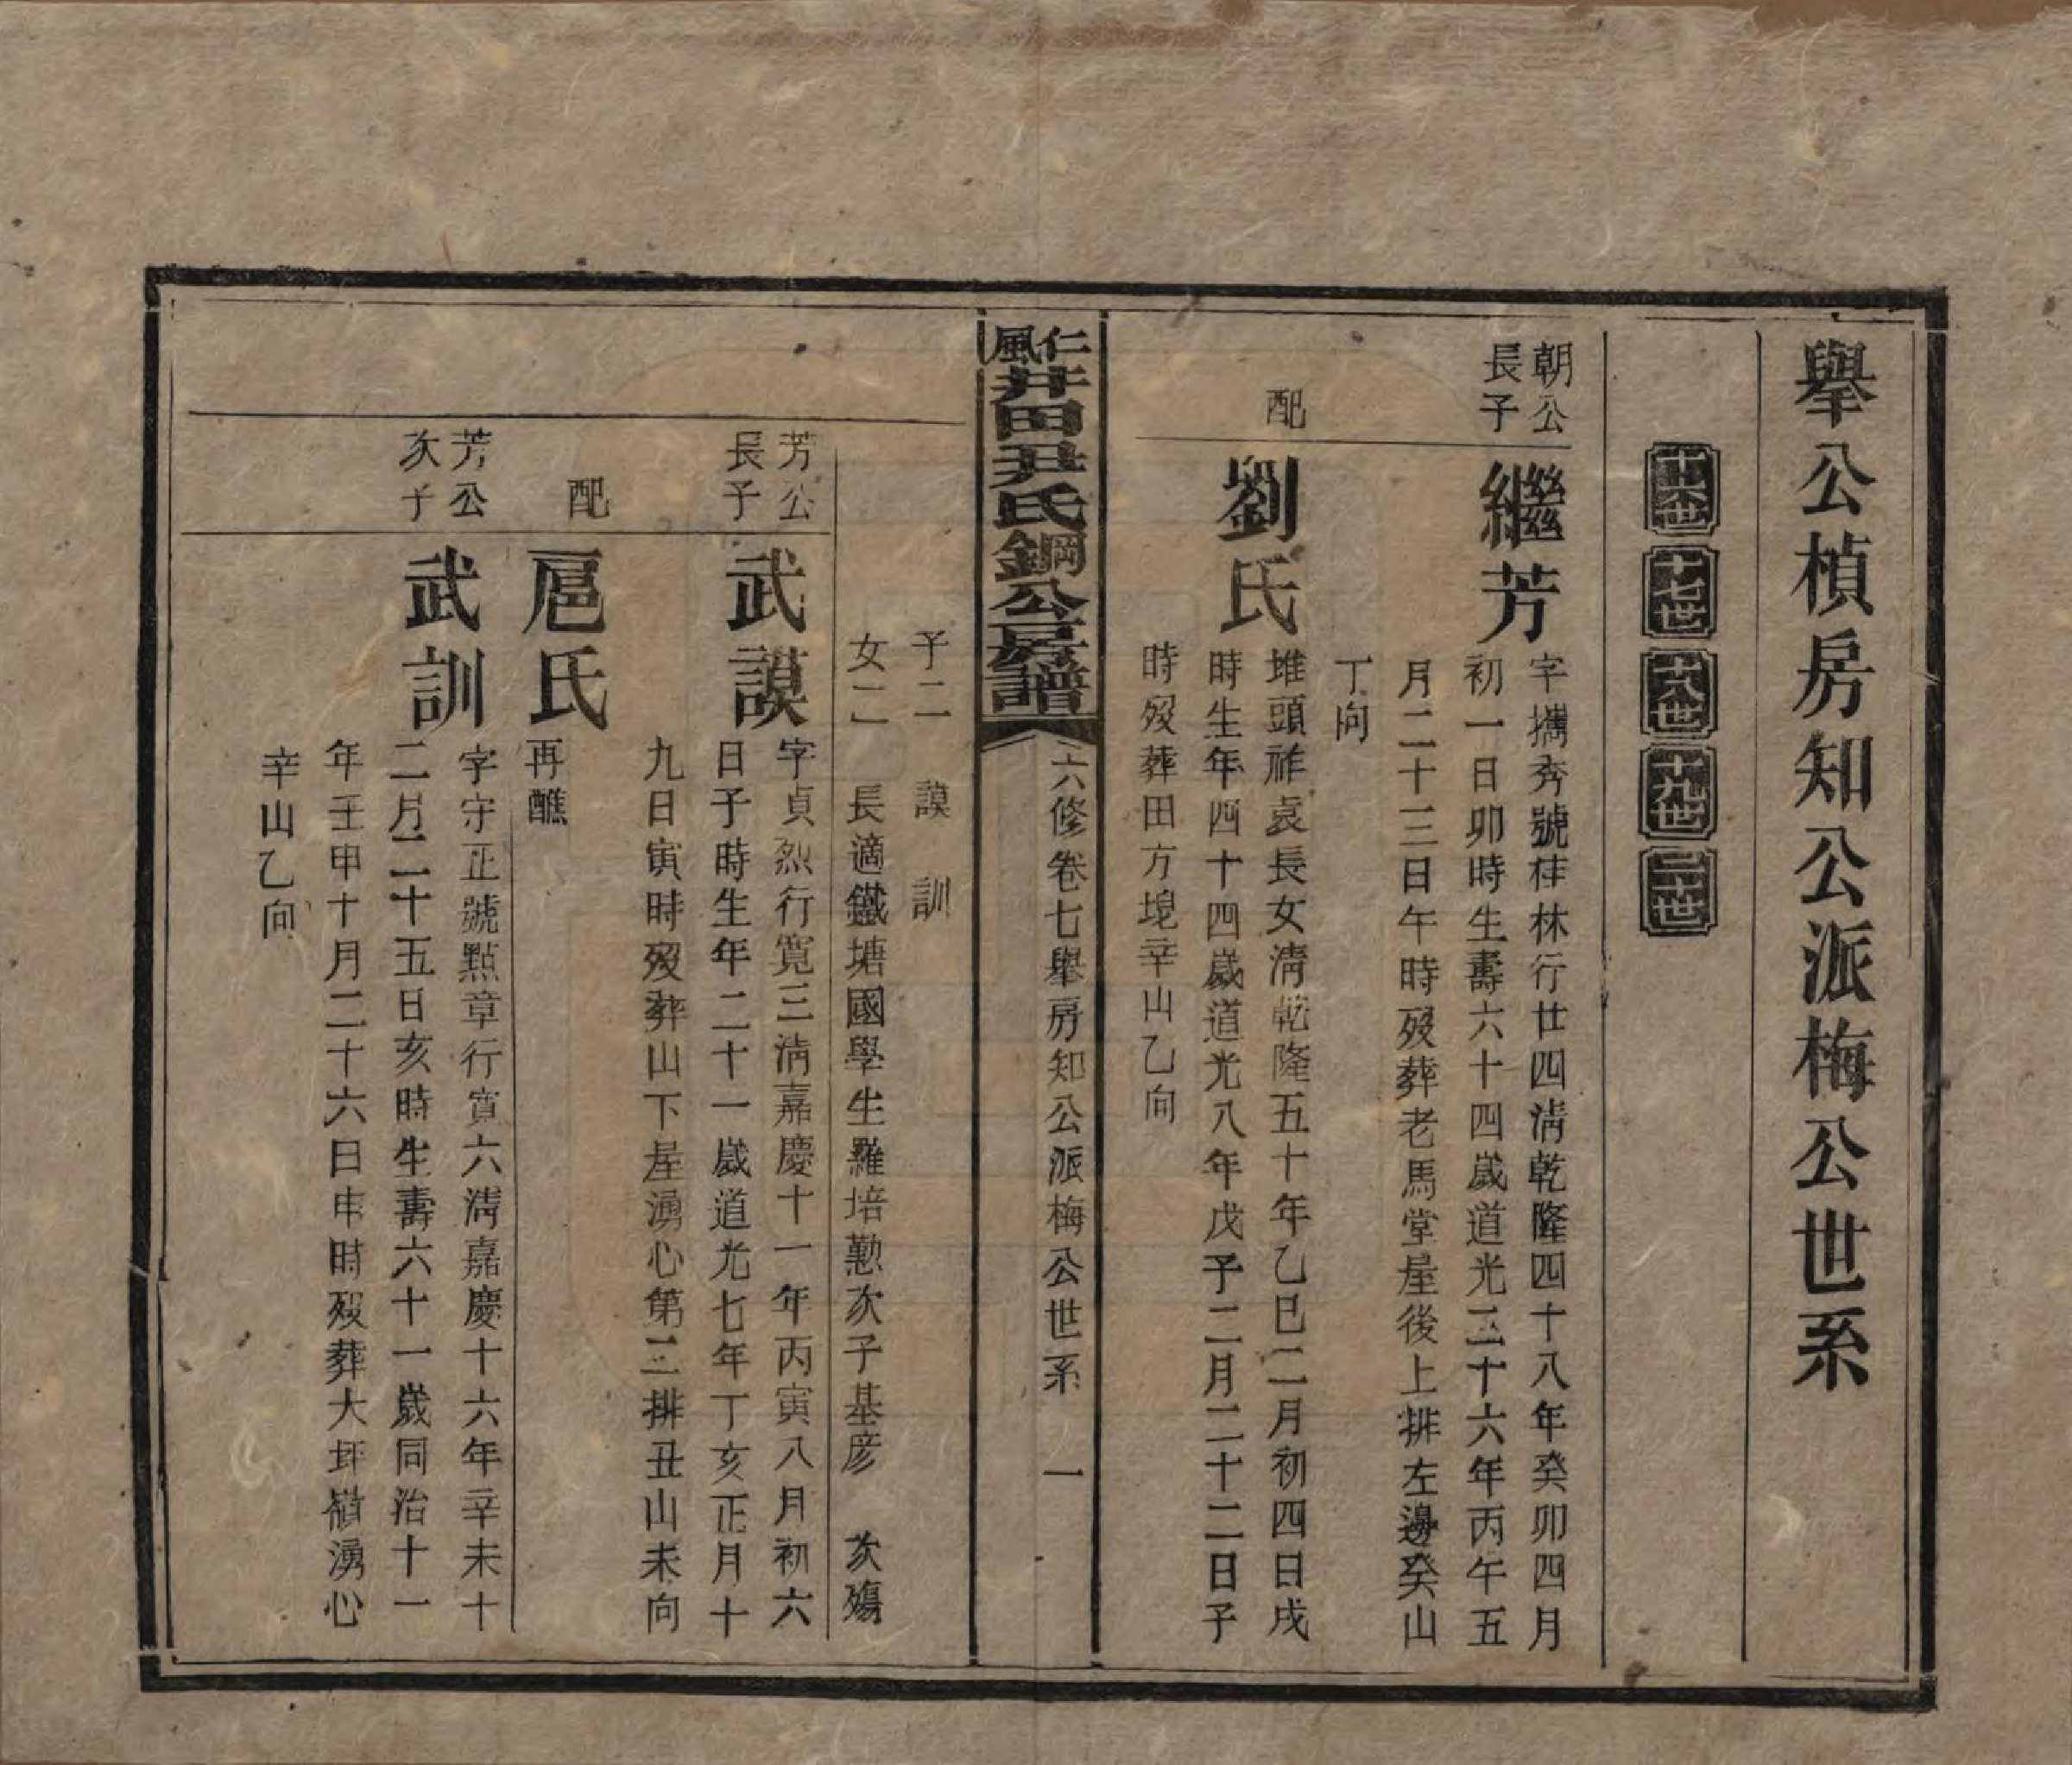 舉公楨房知公派梅公世系
十六世 十七世 十八世 十九世 二十世
朝公
長子
繼芳
字攜秀號桂林行廿四淸乾隆四十八年癸卯四月
初一日卯時生壽六十四歲道光二十六年丙午五
月二十三日午時歿葬老馬堂屋後上排左邊癸山
丁向
配
劉氏
堆頭祚袁長女淸乾隆五十年乙巳二月初四日戌
時生年四十四歲道光八年戊子二月二十二日子
時歿葬田方塊辛山乙向
仁風井田尹氏鋼公房譜
六修卷七舉房知公派梅公世系 一
子二 謨 訓
女二 長適鐵塘國學生羅培懃次子基彦 次殤
芳公
長子
武謨
字貞烈行寬三淸嘉慶十一年丙寅八月初六
日子時生年二十一歲道光七年丁亥正月十
九日寅時歿葬山下屋湧心第二排丑山未向
配
扈氏
再醮
芳公
次子
武訓
字守正號點章行寬六淸嘉慶十六年辛未十
二月二十五日亥時生壽六十一歲同治十一
年壬申十月二十六日申時歿葬大坪嶺湧心
辛山乙向